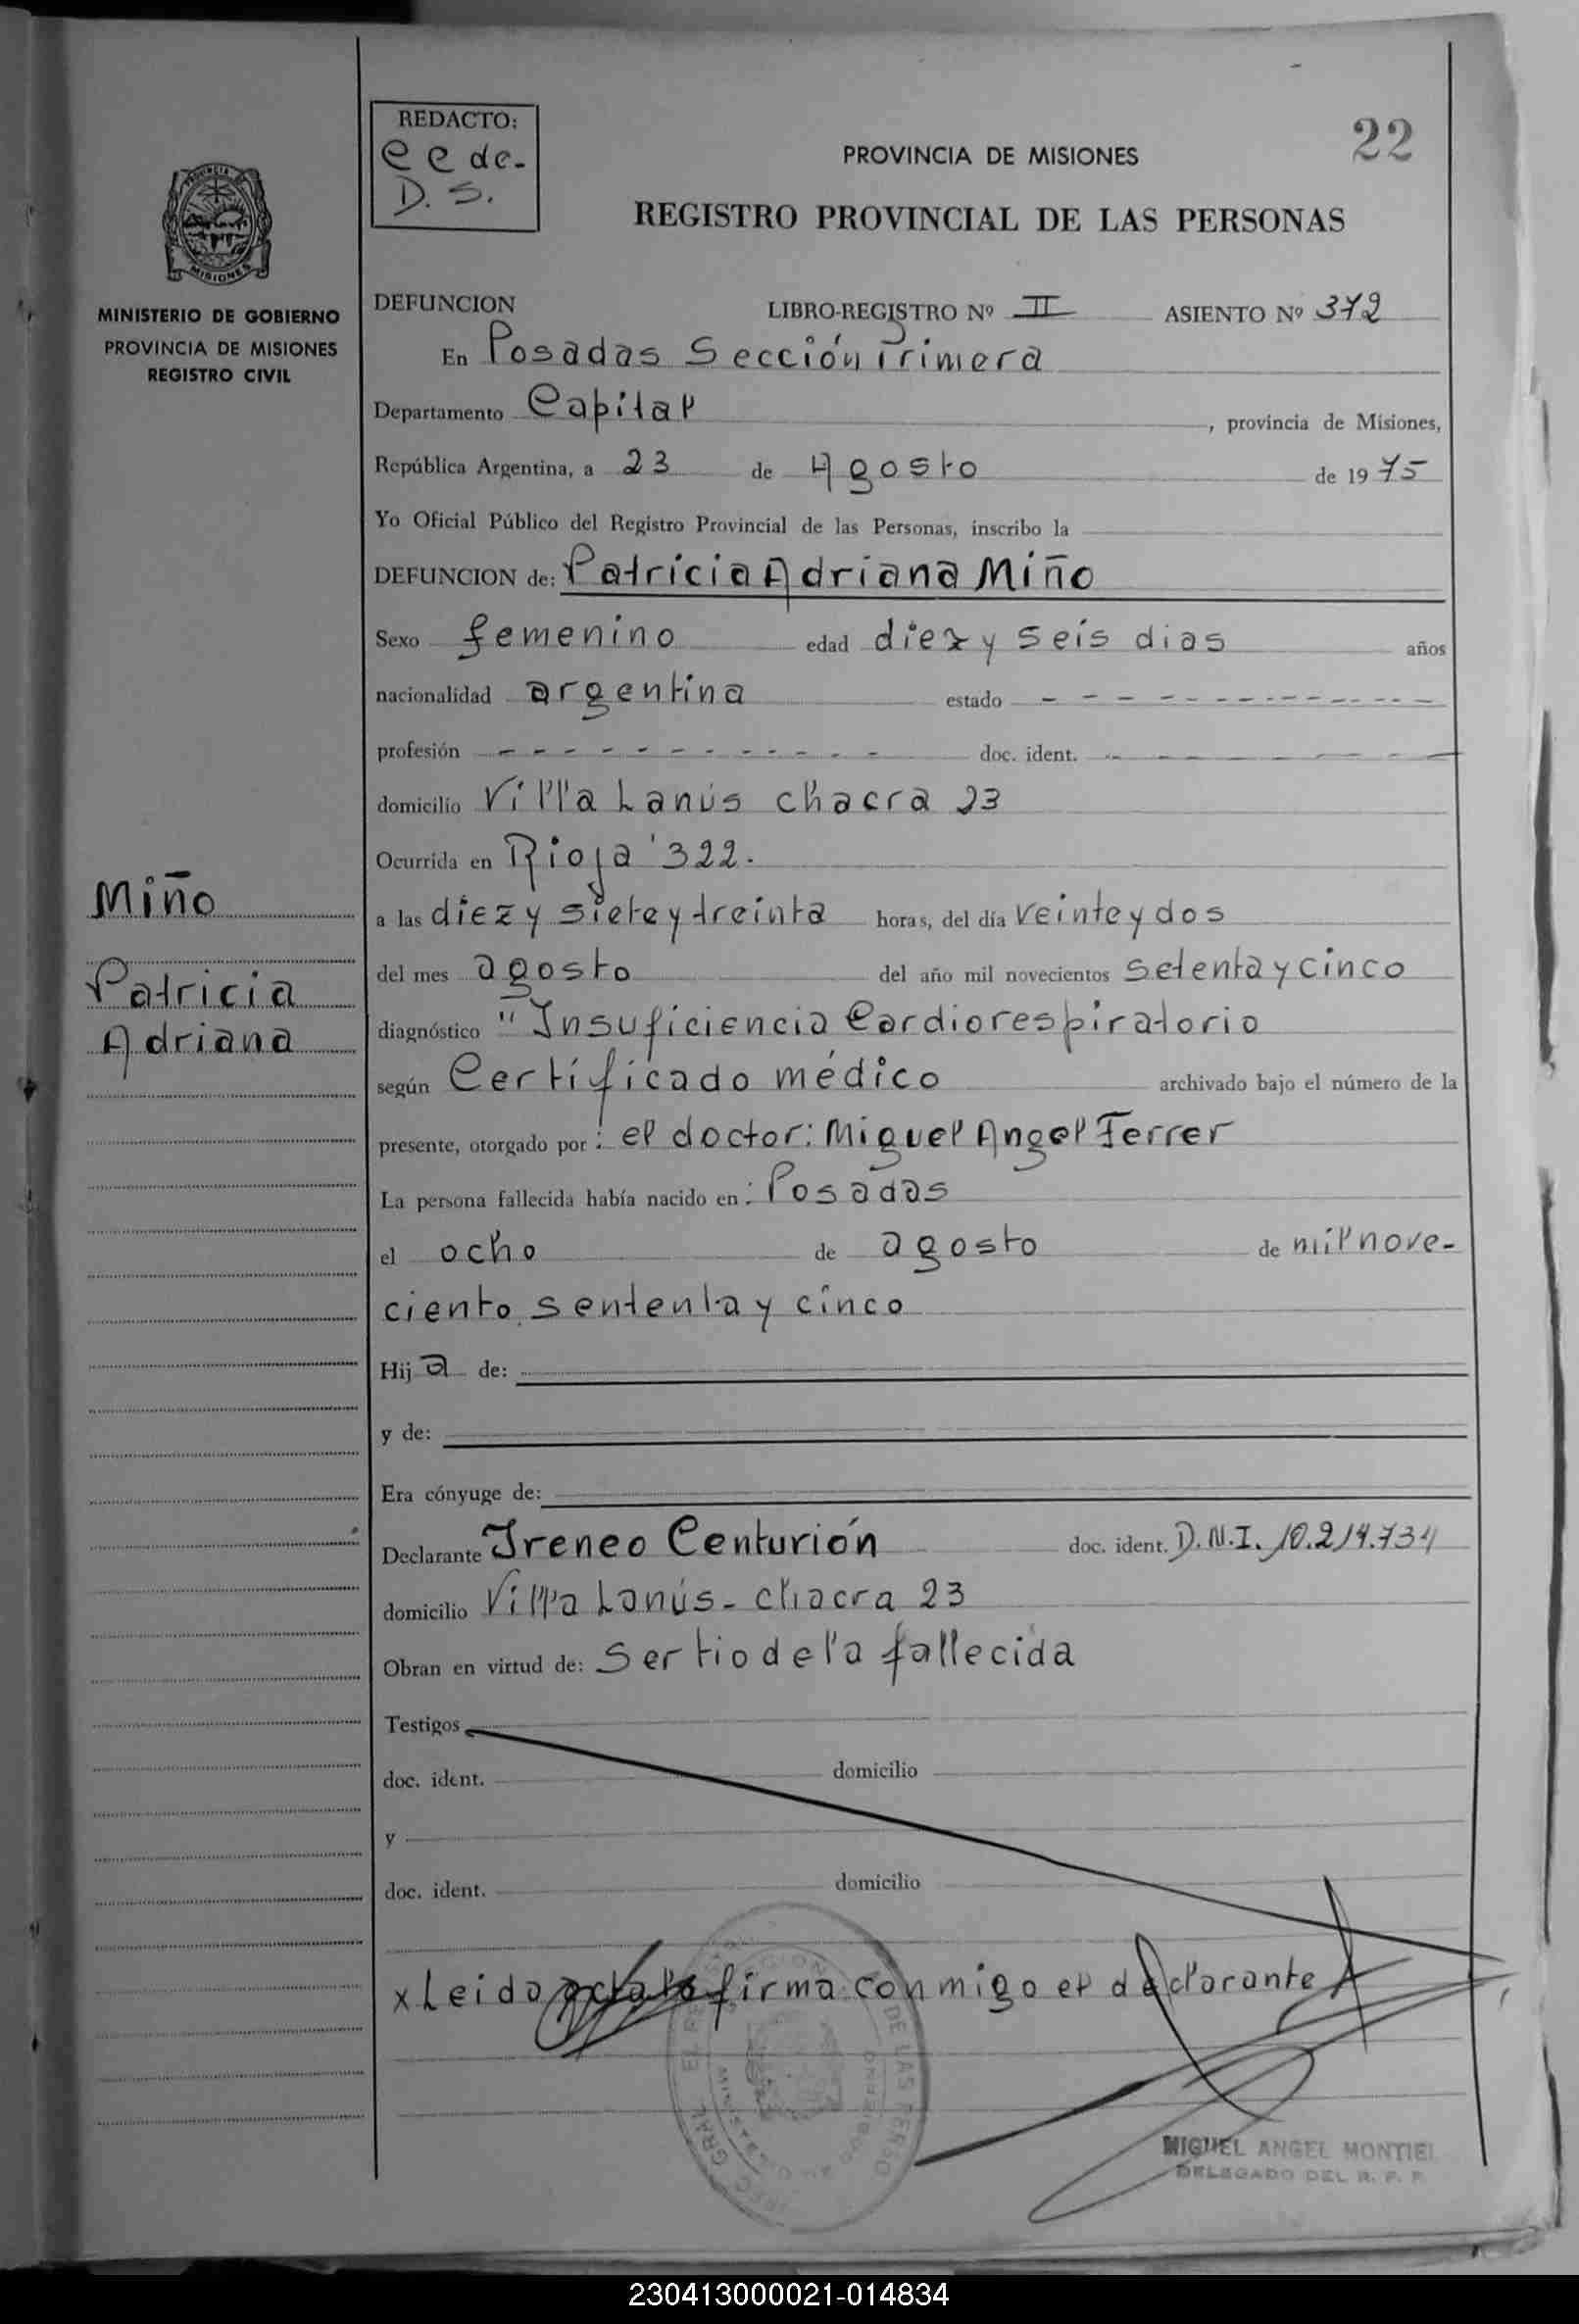 REDACTO:
CC de-
D. S.
22
PROVINCIA DE MISIONES
REGISTRO PROVINCIAL DE LAS PERSONAS
PROVINCIA DE
MISIONES
MINISTERIO DE GOBIERNO
PROVINCIA DE MISIONES
REGISTRO CIVIL
DEFUNCION LIBRO-REGISTRO Nº II ASIENTO Nº 372
En Posadas Sección Primera
Departamento Capital, provincia de Misiones,
República Argentina, a 23 de Agosto de 1975
Yo Oficial Público del Registro Provincial de las Personas, inscribo la
DEFUNCION de: Patricia Adriana Miño
Sexo femenino edad diez y seis dias años
nacionalidad argentina estado - - - - - - - - - - - -
profesión - - - - - - - - - - - doc. ident. - - - - - - - -
domicilio Villa Lanús chacra 23
Ocurrida en Rioja 322.
Miño
a las diez y siete y treinta horas, del día veinte y dos
Patricia
del mes agosto del año mil novecientos setenta y cinco
Adriana
diagnóstico "Insuficiencia Cardiorespiratorio
según Certificado médico archivado bajo el número de la
presente, otorgado por: el doctor: Miguel Angel Ferrer
La persona fallecida había nacido en: Posadas
el ocho de agosto de mil nove-
ciento sententa y cinco
Hija de:
y de:
Era cónyuge de:
Declarante Ireneo Centurión doc. ident. D.N.I. 10.214.734
domicilio Villa Lanús - chacra 23
Obran en virtud de: Ser tio de la fallecida
Testigos
doc. ident. domicilio
y
doc. ident. domicilio
x Leido acta la firma conmigo el declarante
MIGUEL ANGEL MONTIEL
DELEGADO DEL R. P. P.
230413000021-014834